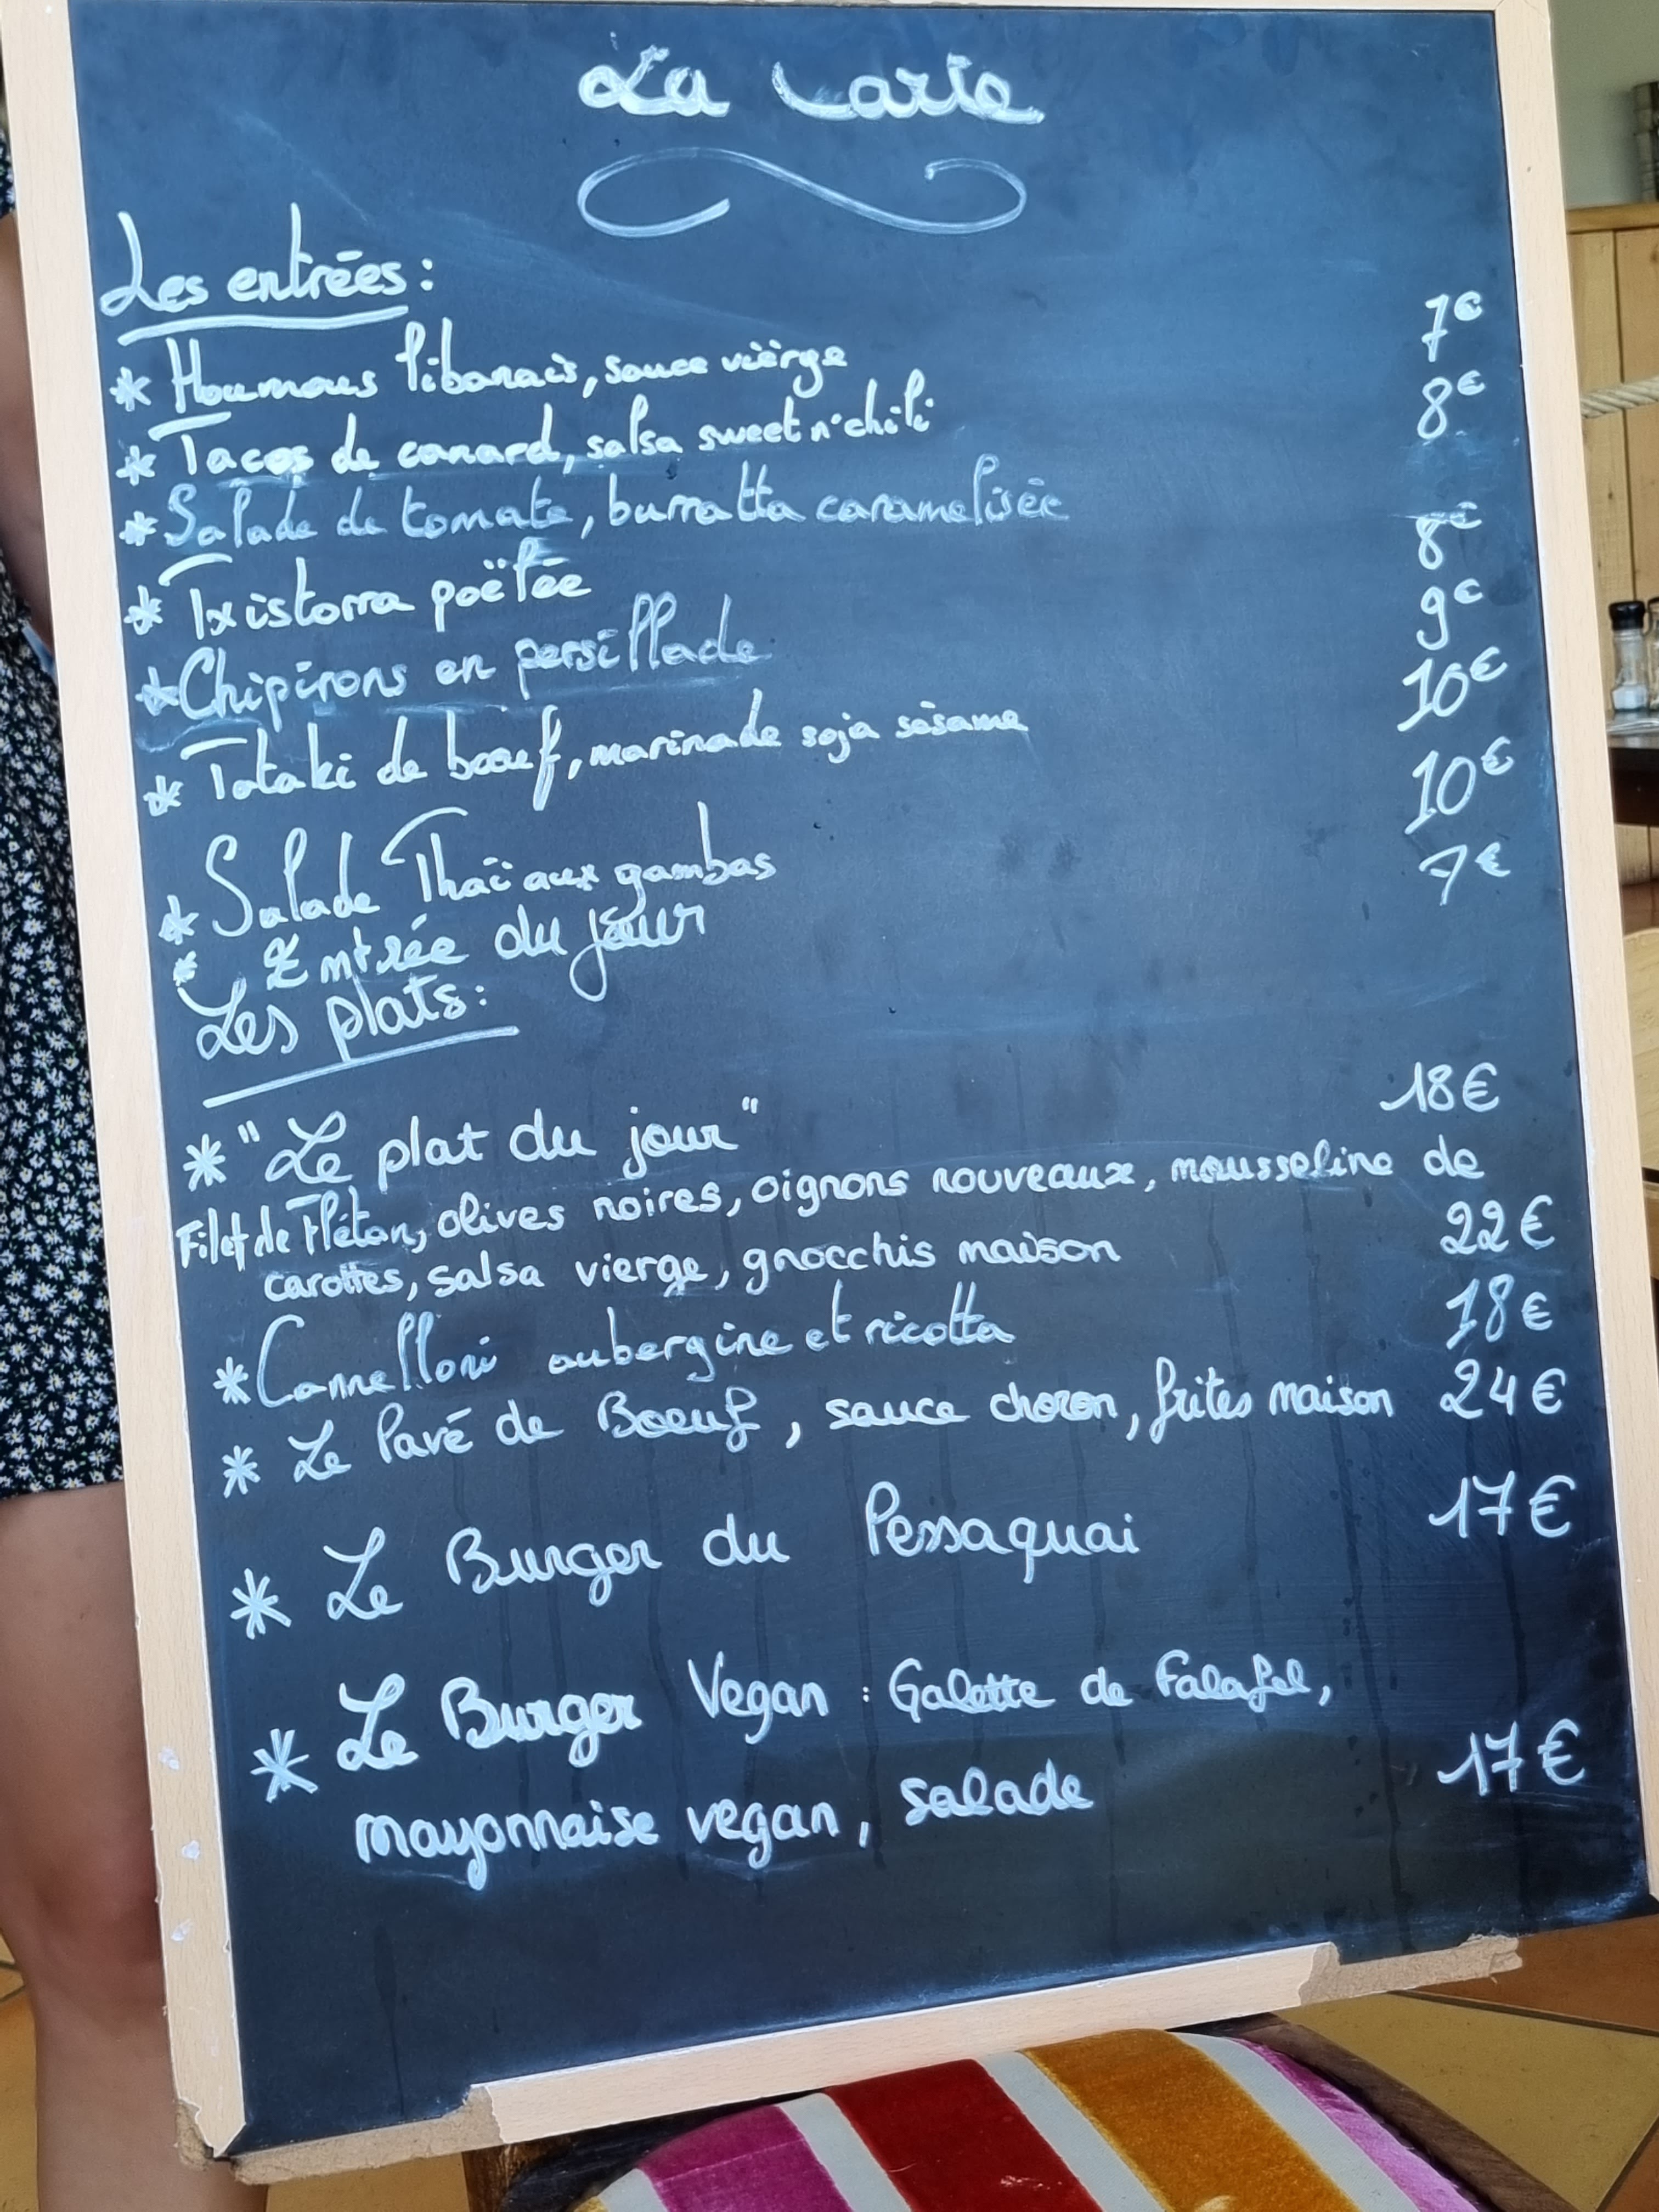 La Carte
Les entrées :
* Houmous libanais, sauce vièrge 7€
* Tacos de canard, salsa sweet n'chili 8€
* Salade de tomate, burratta caramelisée
* Txistorra poëlée 8€
* Chipirons en persillade 9€
* Tataki de boeuf, marinade soja sésame 10€
* Salade Thaï aux gambas 10€
* Entrée du jour 7€
Les plats :
* "Le plat du jour" 18€
Filet de Flétan, olives noires, oignons nouveaux, mousseline de
carottes, salsa vierge, gnocchis maison 22€
* Cannelloni aubergine et ricotta 18€
* Le Pavé de Boeuf, sauce choron, frites maison 24€
* Le Burger du Pessaquai 17€
* Le Burger Vegan : Galette de Falafel,
mayonnaise vegan, salade 17€